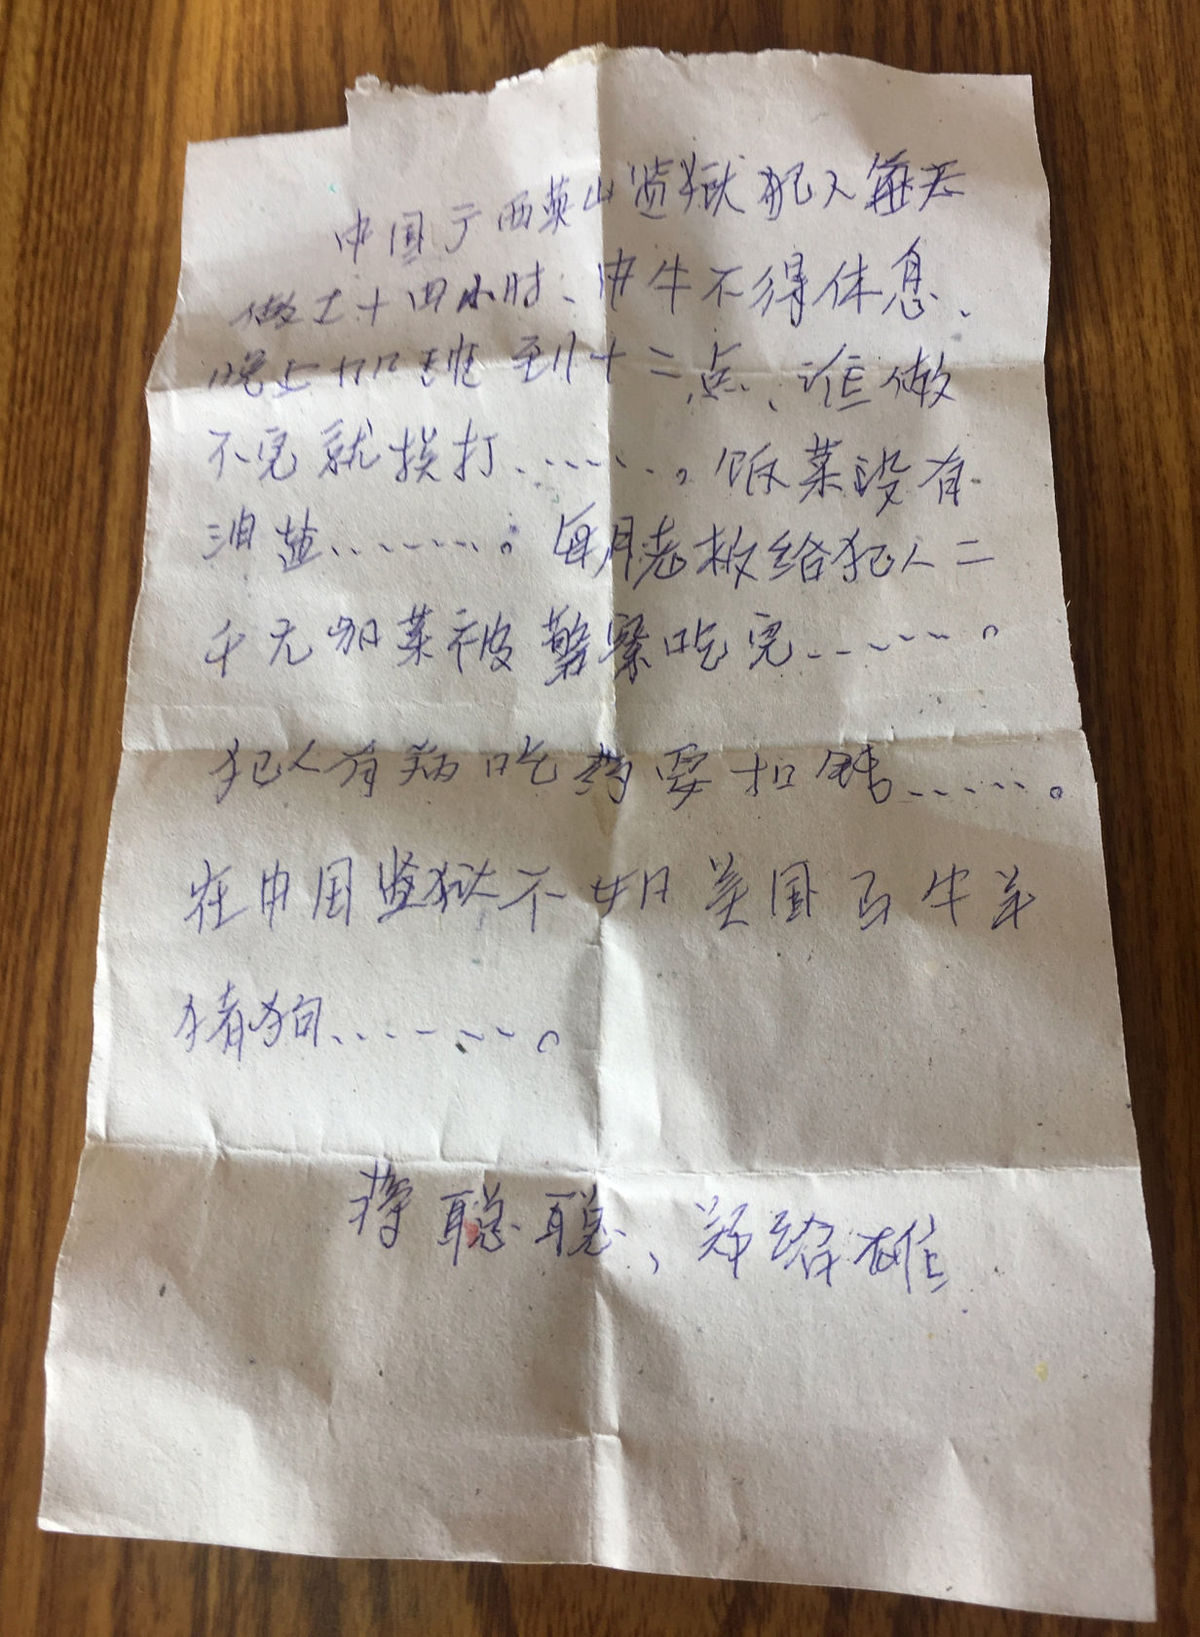 中国广西英山监狱犯人每天
做工十四小时、中午不得休息、
晚上加班到十二点、谁做
不完就挨打………。饭菜没有
油盐………。每月老板给犯人二
千元加菜被警察吃完………。
犯人有病吃药要扣钱………。
在中国监狱不如美国马牛羊
猪狗………。
蒋聪聪、郑给雄